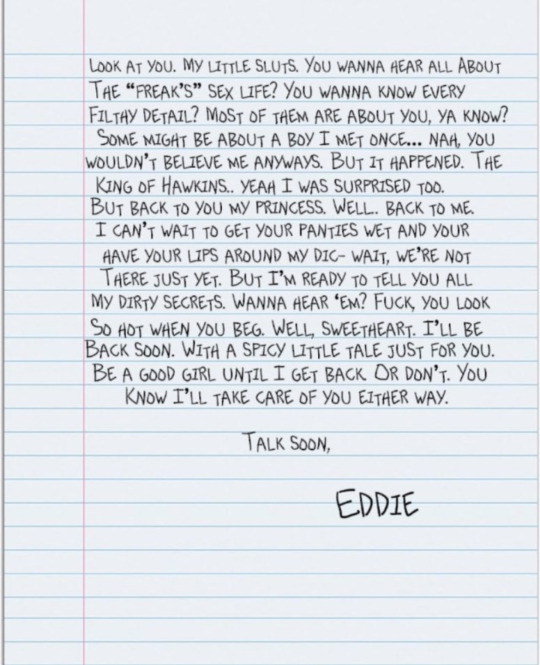 LOOK AT YOU. MY LITTLE SLUTS. YOU WANNA HEAR ALL ABOUT
THE “FREAK’S” SEX LIFE? YOU WANNA KNOW EVERY
FILTHY DETAIL? MOST OF THEM ARE ABOUT YOU, YA KNOW?
SOME MIGHT BE ABOUT A BOY I MET ONCE... NAH, YOU
WOULDN’T BELIEVE ME ANYWAYS. BUT IT HAPPENED. THE
KING OF HAWKINS.. YEAH I WAS SURPRISED TOO.
BUT BACK TO YOU MY PRINCESS. WELL.. BACK TO ME.
I CAN’T WAIT TO GET YOUR PANTIES WET AND YOUR
HAVE YOUR LIPS AROUND MY DIC- WAIT, WE’RE NOT
THERE JUST YET. BUT I’M READY TO TELL YOU ALL
MY DIRTY SECRETS. WANNA HEAR ‘EM? FUCK, YOU LOOK
SO HOT WHEN YOU BEG. WELL, SWEETHEART. I’LL BE
BACK SOON. WITH A SPICY LITTLE TALE JUST FOR YOU.
BE A GOOD GIRL UNTIL I GET BACK. OR DON’T. YOU
KNOW I’LL TAKE CARE OF YOU EITHER WAY.
TALK SOON,
EDDIE